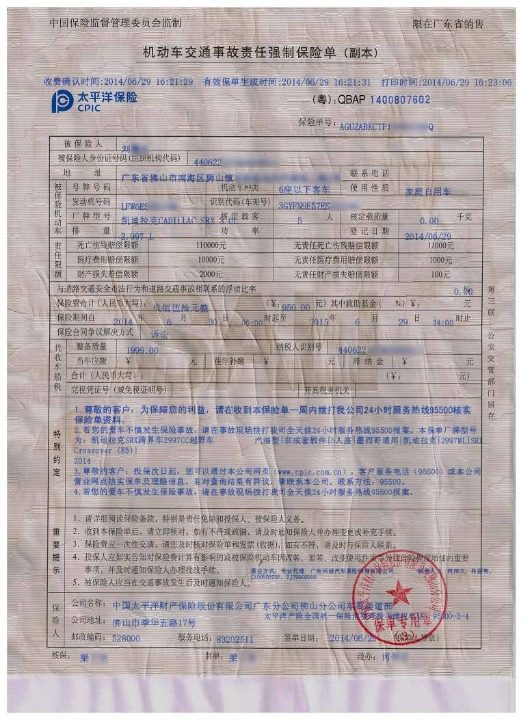 中国保险监督管理委员会监制 限在广东省销售
机动车交通事故责任强制保险单（副本）
收费确认时间:2014/06/29 16:21:29 有效保单生成时间:2014/06/29 16:21:31 打印时间:2014/06/29 16:23:06
太平洋保险
CPIC
(粤): QBAP 1400807602
保险单号: AGUZABKCTP1 Q
被保险人 刘
被保险人身份证号码(组织机构代码) 440622
地址 广东省佛山市南海区狮山镇 联系电话
被保险机动车 号牌号码 机动车种类 6座以下客车 使用性质 家庭自用车
发动机号码 LFW6ES 识别代码(车架号) 3GYFN9E57ES
厂牌型号 凯迪拉克CADILLAC SRX 核定载客 5 人 核定载质量 0.00 千克
排量 2.997 L 功率 登记日期 2014/06/29
责任限额 死亡伤残赔偿限额 110000元 无责任死亡伤残赔偿限额 11000元
医疗费用赔偿限额 10000元 无责任医疗费用赔偿限额 1000元
财产损失赔偿限额 2000元 无责任财产损失赔偿限额 100元
与道路交通安全违法行为和道路交通事故相联系的浮动比率 0.00 %
保险费合计(人民币大写): 玖佰伍拾元整 (￥: 950.00 元) 其中救助基金( %)￥: 元
保险期间自 2014 年 6 月 30 日 00:00 时起至 2015 年 6 月 29 日 24:00 时止
保险合同争议解决方式 诉讼
代收车船税 整备质量 1999.00 纳税人识别号 440622
当年应缴 ￥: 元 往年补缴 ￥: 元 滞纳金 ￥: 元
合计(人民币大写): (￥: 元)
完税凭证号(减免税证明号) 开具税务机关
特别约定
1.尊敬的客户：为保障您的利益，请在收到本保险单一周内拨打我公司24小时服务热线95500核实
保险单资料。
2.若您的爱车不慎发生保险事故，请在事故现场拨打我司全天候24小时服务热线95500报案。本保单厂牌型号
为：凯迪拉克SRX跨界车2997CC越野车 汽油型|非成套散件|5人座|墨西哥通用|凯迪拉克|2997ML|SRX
Crossover
3.尊敬的客户：投保次日起，您可以通过本公司网页（www.cpic.com.cn）、客户服务电话（95500）或本公司
营业网点核实保单及理赔信息。若对查询结果有异议，请联系本公司。联系方法：95500。
4.若您的爱车不慎发生保险事故，请在事故现场拨打我司全天候24小时服务热线95500报案。
重要提示
1. 请详细阅读保险条款，特别是责任免除和投保人、被保险人义务。
2. 收到本保险单后，请立即核对，如有不符或疏漏，请及时通知保险人并办理变更或补充手续。
3. 保险费应一次性交清，请您及时核对保险单和发票(收据)，如有不符，请及时与保险人联系。
4. 投保人应如实告知对保险费计算有影响的或被保险机动车因改装、加装、改变使用性质等导致危险程度增加的重要
事项，并及时通知保险人办理批改手续。
5. 被保险人应当在交通事故发生后及时通知保险人。
保险人 公司名称: 中国太平洋财产保险股份有限公司广东分公司佛山分公司车商渠道部
公司地址: 佛山市季华五路17号
邮政编码: 528000 服务电话: 83202511 签单日期: 2014/06/29
保单专用章
(3)
核保: 梁 制单: 梁 经办:
第三联 公安交管部门留存